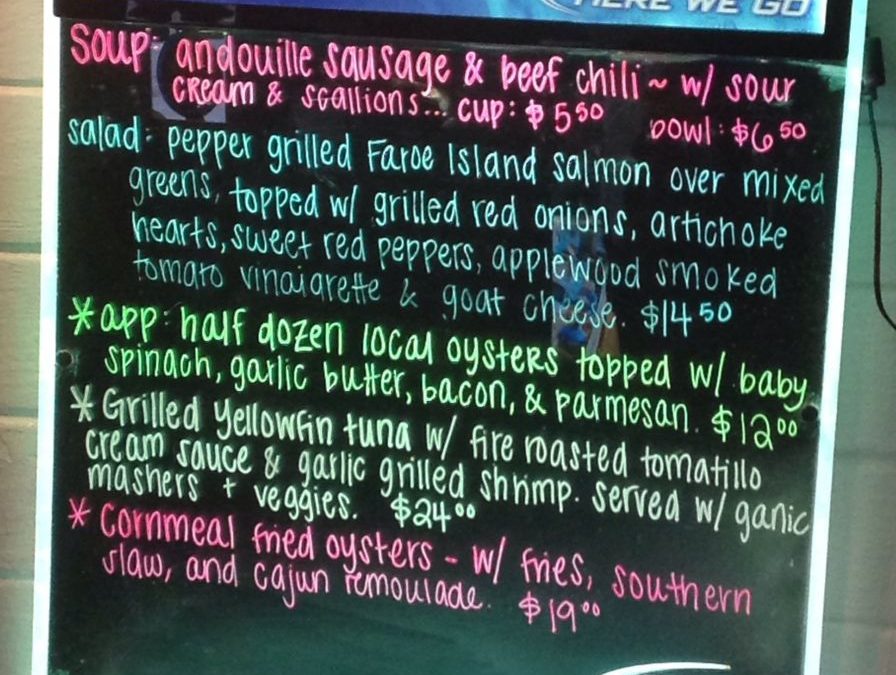 HERE WE GO
Soup: andouille sausage & beef chili ~ w/ sour
cream & scallions... cup: $5.50 bowl: $6.50
salad: pepper grilled Faroe Island salmon over mixed
greens, topped w/ grilled red onions, artichoke
hearts, sweet red peppers, applewood smoked
tomato vinaigrette & goat cheese. $14.50
* app: half dozen local oysters topped w/ baby
spinach, garlic butter, bacon, & parmesan. $12.00
* Grilled yellowfin tuna w/ fire roasted tomatillo
cream sauce & garlic grilled shrimp. served w/ garlic
mashers + veggies. $24.00
* Cornmeal fried oysters - w/ fries, southern
slaw, and cajun remoulade. $19.00